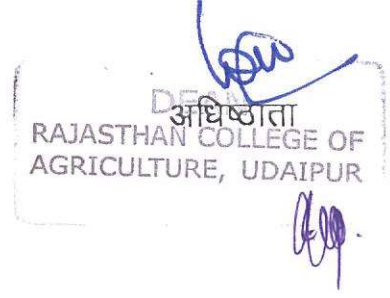 DEAN
अधिष्ठाता
RAJASTHAN COLLEGE OF
AGRICULTURE, UDAIPUR